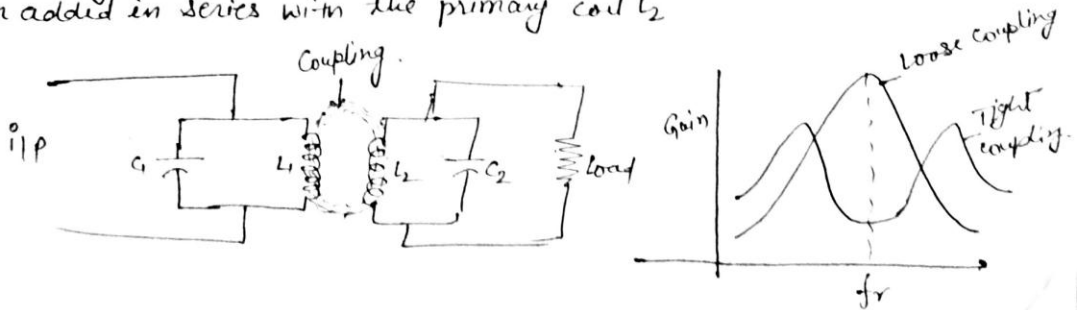 added in series with the primary coil L2
Coupling.
i/p
C1
L1
L2
C2
Load
Gain
Loose coupling
Tight
coupling.
fr